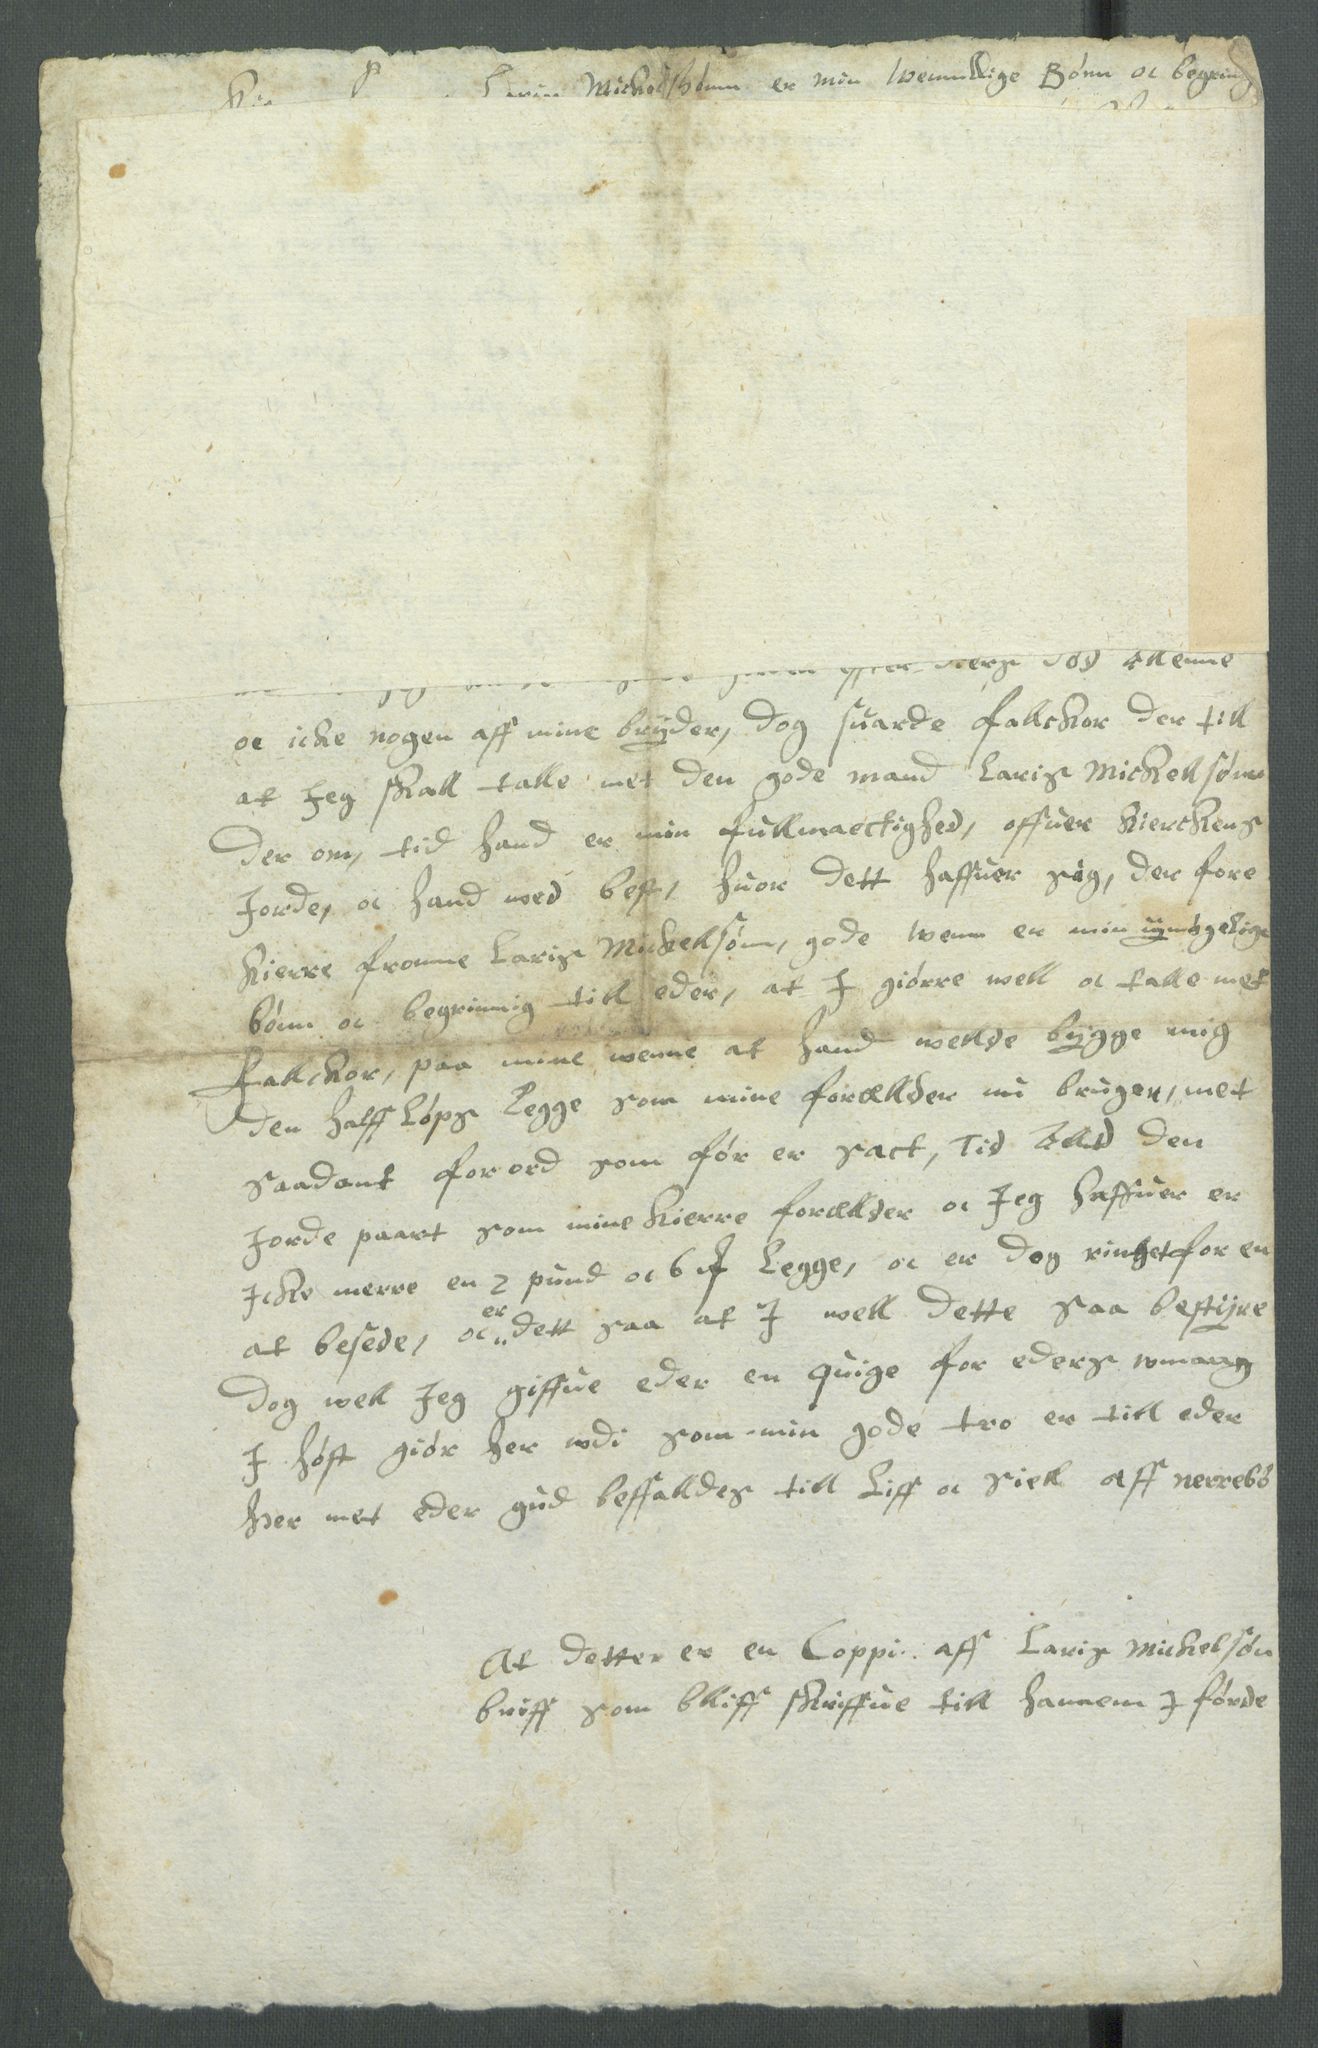 Mickelsønn er min wenndlige Bønn oc begering
effter ders død Allenne
oc icke nogen aff mine brÿder, dog suarde fallckor der till
at Jeg skall talle met den gode mand Laris Mickellsønn
der om, tid hand er min fullmaectighed, offuer kierckens
Jorde, oc hand wed best, huor dett haffuer sig, der fore
kierre fromme Laris Mickellsønn, gode wenn er min ÿmÿgelige
bønn oc begrinnig till eder, at I giørre well oc talle met
fallckor, paa mine wenne at hand wellde bÿgge mig
den halff Løps Legge som mine forællder nu bruger, met
saadant forord som før er sact, Tid Alltid den
Jorde paart som mine kierre forællder oc Jeg haffuer er
Icke merre en 2 pund oc 6 Legge, oc er dog ringet for en
at besede, oc er dett saa at I well dette saa bestÿre
dog well Jeg giffue eder en quige for eders wmaag
I høst giør her wdi som min gode tro er till eder
her met eder gud beffalldes till Liff oc siell aff nerrebø
At dette er en Coppi aff Laris Mickelsøn
briff som bliff skriffue till hannem I førde